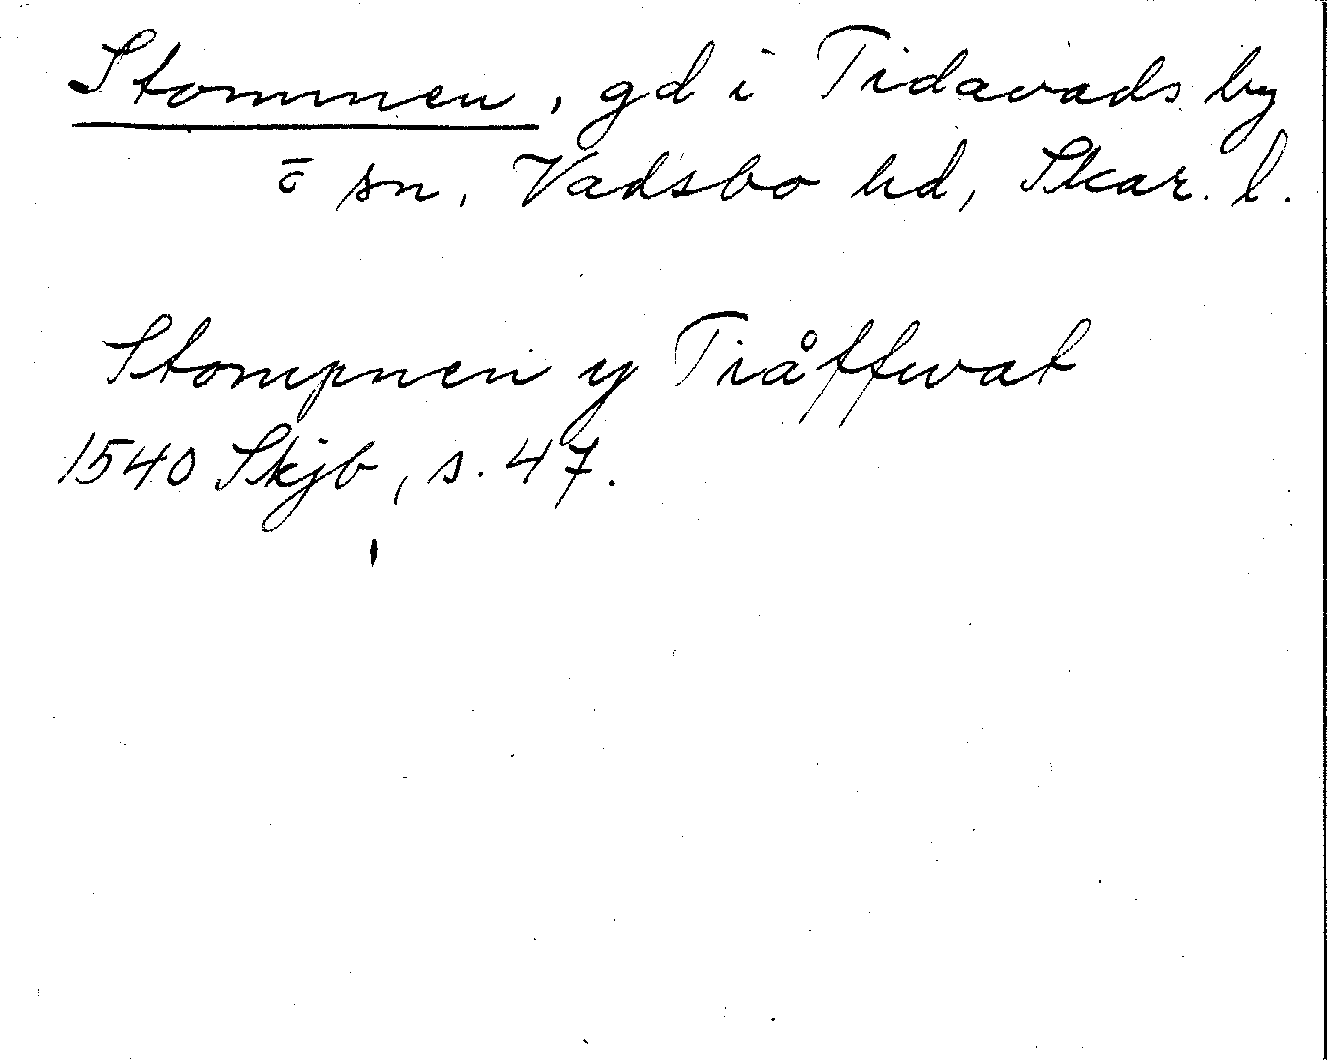 Stommen, gd i Tidavads by
o sn, Vadsbo hd, Skar. l.
Stompnen y Tiåffwat
1540 Skjb, s. 47.